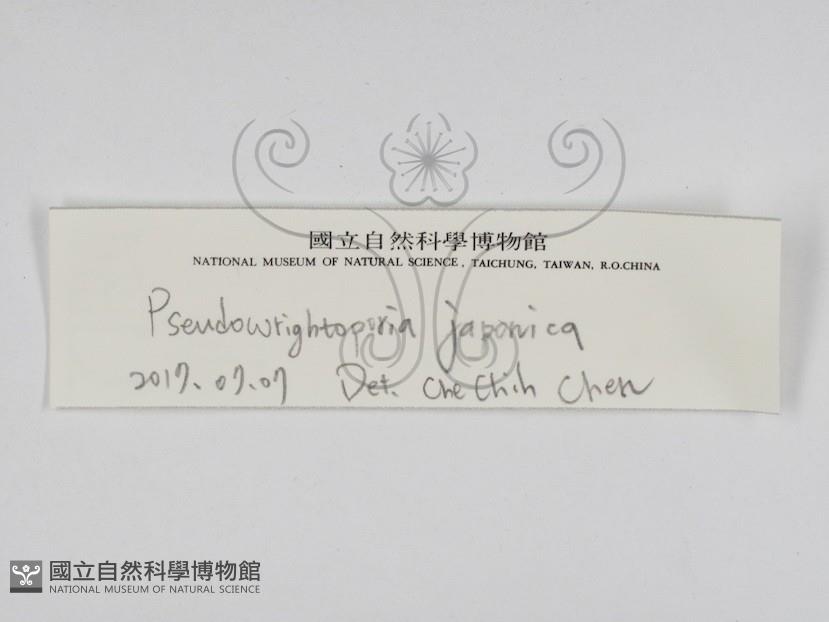 國立自然科學博物館
NATIONAL MUSEUM OF NATURAL SCIENCE, TAICHUNG, TAIWAN, R.O.CHINA
Pseudowrightoporia japonica
2017.07.07 Det. Che Chih Chen
國立自然科學博物館
NATIONAL MUSEUM OF NATURAL SCIENCE